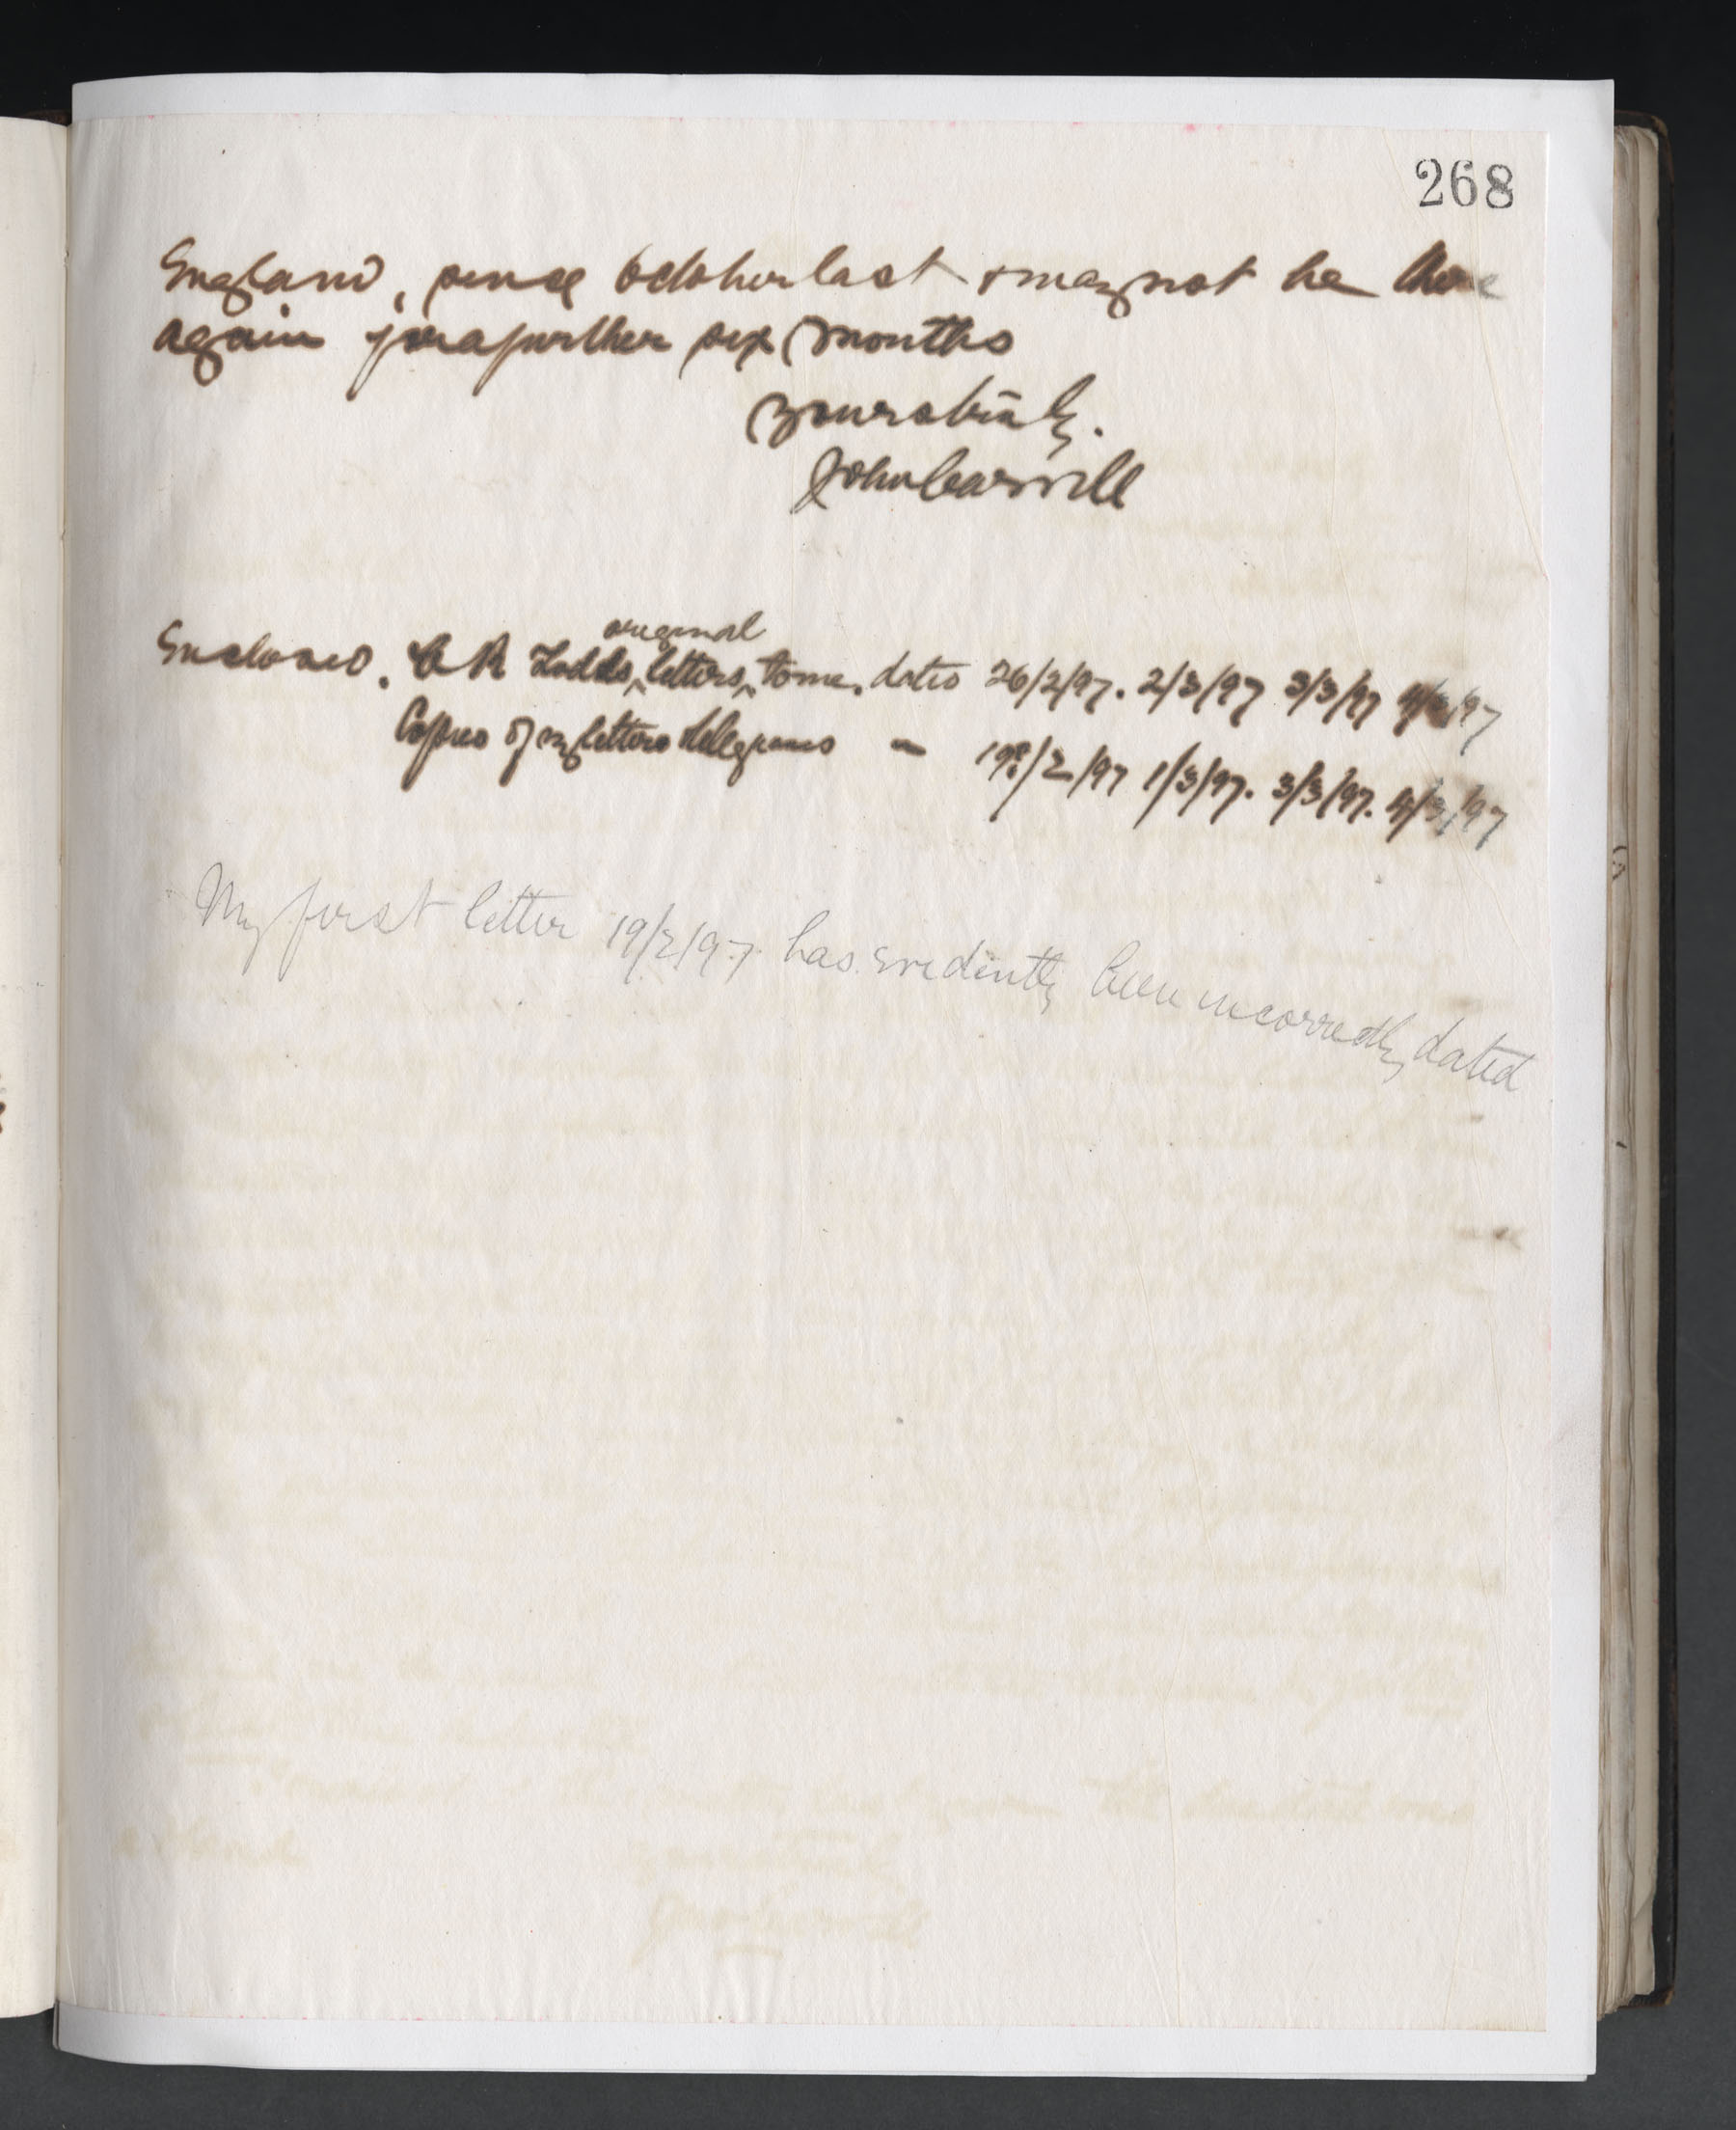 268
England, since October last & may not be there
again for a further six months
Yours truly.
John Carvill
original
Enclosed. C R Todds, letters, to me. dates 26/2/97. 2/3/97 3/3/97 4/3/97
Copies of my letters telegrams - 19?/2/97 1/3/97. 3/3/97. 4/3/97
My first letter 19/2/97. has evidently been incorrectly dated